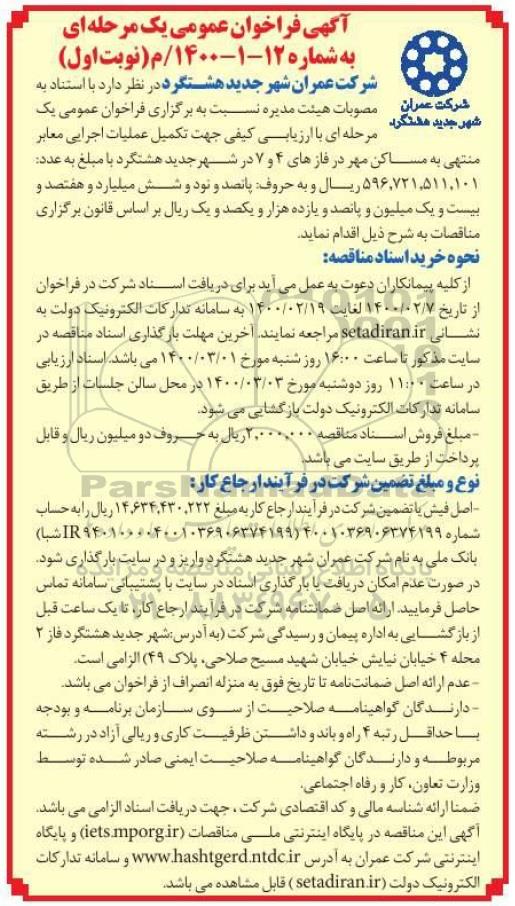 آگهی فراخوان عمومی یک مرحله ای
به شماره ۱۲-۱-۱۴۰۰/م (نوبت اول)
شرکت عمران
شهر جدید هشتگرد
شرکت عمران شهر جدید هشتگرد در نظر دارد با استناد به
مصوبات هیئت مدیره نسبت به برگزاری فراخوان عمومی یک
مرحله ای با ارزیابی کیفی جهت تکمیل عملیات اجرایی معابر
منتهی به مساکن مهر در فاز های ۴ و ۷ در شهر جدید هشتگرد با مبلغ به عدد:
۵۹۶,۷۲۱,۵۱۱,۱۰۱ ریال و به حروف: پانصد و نود و شش میلیارد و هفتصد و
بیست و یک میلیون و پانصد و یازده هزار و یکصد و یک ریال بر اساس قانون برگزاری
مناقصات به شرح ذیل اقدام نماید.
نحوه خرید اسناد مناقصه:
از کلیه پیمانکاران دعوت به عمل می آید برای دریافت اسناد شرکت در فراخوان
از تاریخ ۱۴۰۰/۰۲/۷ لغایت ۱۴۰۰/۰۲/۱۹ به سامانه تدارکات الکترونیک دولت به
نشانی setadiran.ir مراجعه نمایند. آخرین مهلت بارگذاری اسناد مناقصه در
سایت مذکور تا ساعت ۱۶:۰۰ روز شنبه مورخ ۱۴۰۰/۰۳/۰۱ می باشد. اسناد ارزیابی
در ساعت ۱۱:۰۰ روز دوشنبه مورخ ۱۴۰۰/۰۳/۰۳ در محل سالن جلسات از طریق
سامانه تدارکات الکترونیک دولت بازگشایی می شود.
-مبلغ فروش اسناد مناقصه ۲,۰۰۰,۰۰۰ ریال به حروف دو میلیون ریال و قابل
پرداخت از طریق سایت می باشد.
نوع و مبلغ تضمین شرکت در فرآیند ارجاع کار:
-اصل فیش یا تضمین شرکت در فرآیند ارجاع کار به مبلغ ۱۴,۶۳۴,۴۳۰,۲۲۲ ریال را به حساب
شماره ۴۰۰۱۰۳۶۹۰۶۳۷۴۱۹۹ (IR شبا)
بانک ملی به نام شرکت عمران شهر جدید هشتگرد واریز و در سایت بارگذاری شود.
در صورت عدم امکان دریافت یا بارگذاری اسناد در سایت با پشتیبانی سامانه تماس
حاصل فرمایید. ارائه اصل ضمانتنامه شرکت در فرآیند ارجاع کار تا یک ساعت قبل
از بازگشایی به اداره پیمان و رسیدگی شرکت (به آدرس: شهر جدید هشتگرد فاز ۲
محله ۴ خیابان نیایش خیابان شهید مسیح صلاحی، پلاک ۴۹) الزامی است.
-عدم ارائه اصل ضمانت‌نامه تا تاریخ فوق به منزله انصراف از فراخوان می باشد.
-دارندگان گواهینامه صلاحیت از سوی سازمان برنامه و بودجه
با حداقل رتبه ۴ راه و باند و داشتن ظرفیت کاری و ریالی آزاد در رشته
مربوطه و دارندگان گواهینامه صلاحیت ایمنی صادر شده توسط
وزارت تعاون، کار و رفاه اجتماعی.
ضمنا ارائه شناسه مالی و کد اقتصادی شرکت، جهت دریافت اسناد الزامی می باشد.
آگهی این مناقصه در پایگاه اینترنتی ملی مناقصات (iets.mporg.ir) و پایگاه
اینترنتی شرکت عمران به آدرس www.hashtgerd.ntdc.ir و سامانه تدارکات
الکترونیک دولت (setadiran.ir) قابل مشاهده می باشد.